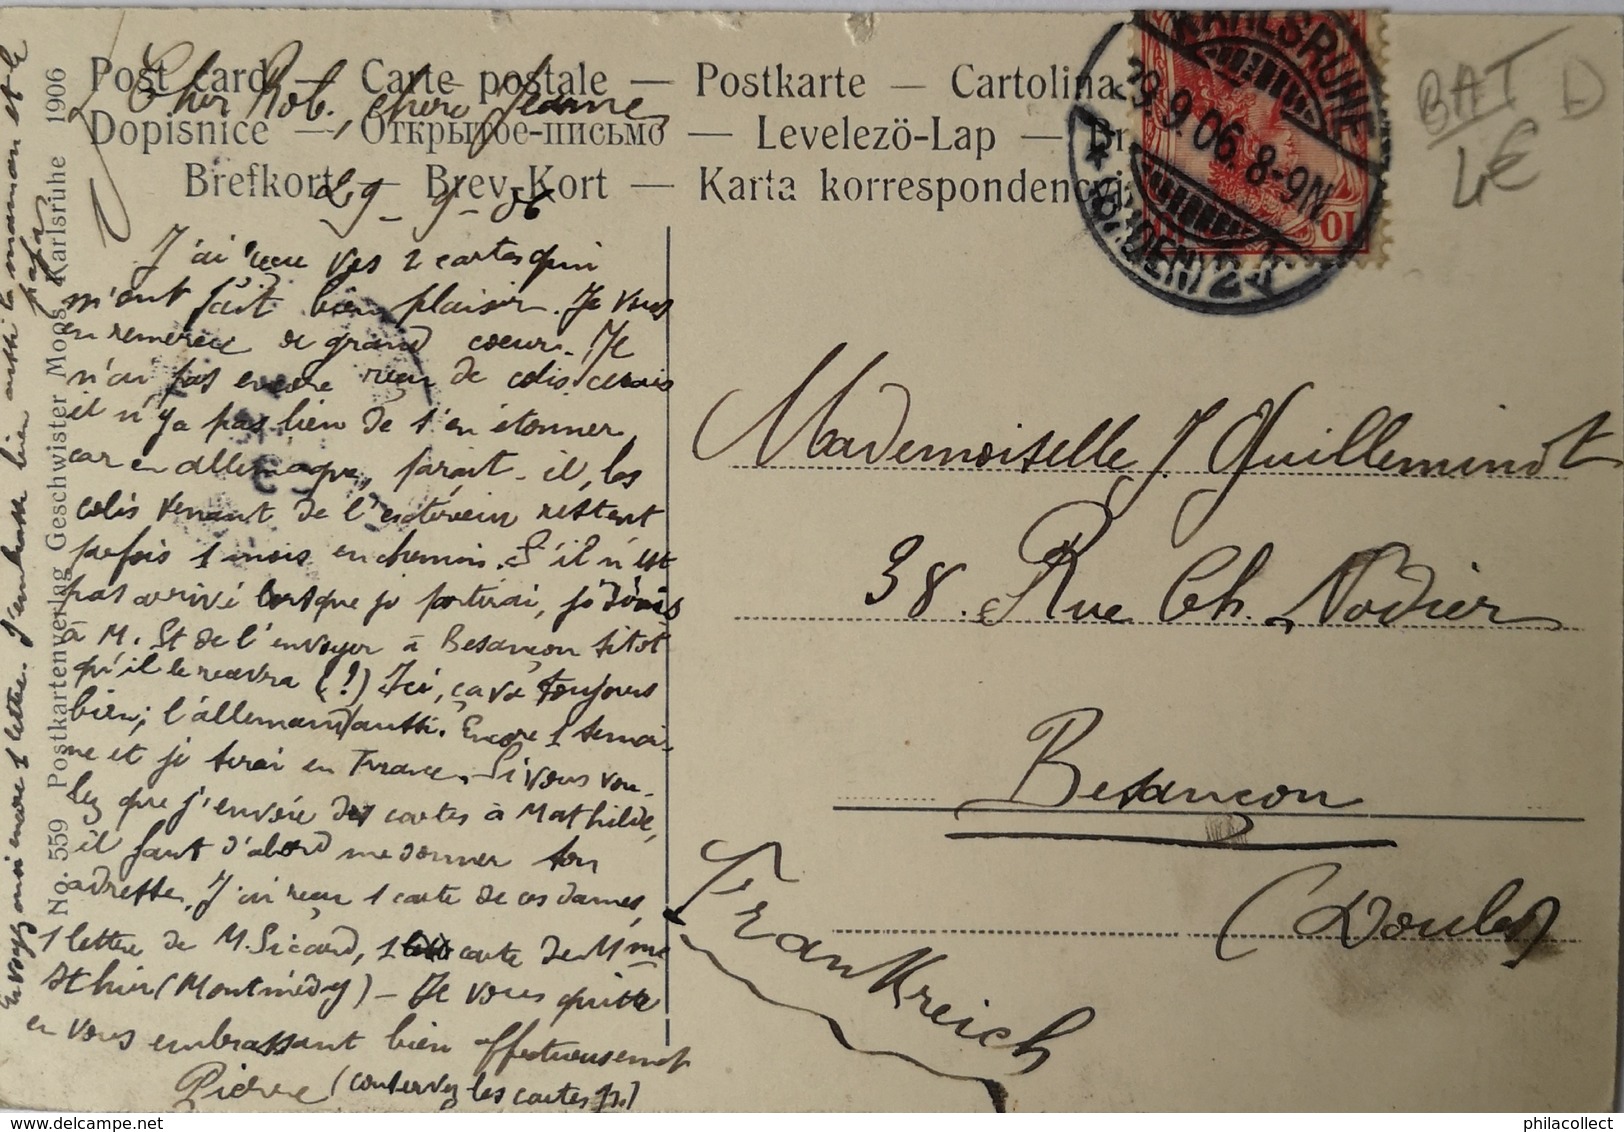 Post card — Carte postale — Postkarte — Cartolina
Dopisnice — Открытое-письмо — Levelezö-Lap — Br
Brefkort — Brev-Kort — Karta korrespondencyi
KARLSRUHE
29.9.06. 8-9N
* (BADEN) 2
10
BAT D
4€
Cher Rob., chère Jeanne
29-9-06
J'ai reçu vos 2 cartes qui
m'ont fait bien plaisir. Je vous
en remercie de grand coeur. Je
n'ai pas encore reçu de colis
il n'y a pas lieu de s'en étonner
car en allemagne, paraît-il, les
colis venant de l'extérieur restent
parfois 1 mois en chemin. S'il n'est
pas arrivé lorsque je partirai, je dirais
à M. St de l'envoyer à Besançon sitôt
qu'il le recevra (!) Ici, ça va toujours
bien; l'allemand aussi. Encore 1 semai-
ne et je serai en France. Si vous vou-
lez que j'envoie des cartes à Mathilde,
il faut d'abord me donner son
adresse. J'ai reçu 1 carte de ces dames,
1 lettre de M. Sicard, 1 carte de Mme
hier (Montmédy) – Je vous quitte
en vous embrassant bien affectueusement
Pierre (conservez les cartes p.)
Envoyez moi encore 1 lettre. J'embrasse bien aussi la maman et le
papa
No. 559 Postkartenverlag Geschwister Moos, Karlsruhe 1906
Mademoiselle J. Guilleminot
38. Rue Ch. Nodier
Besançon
(Doubs)
Frankreich
philacollect
philacollect.com